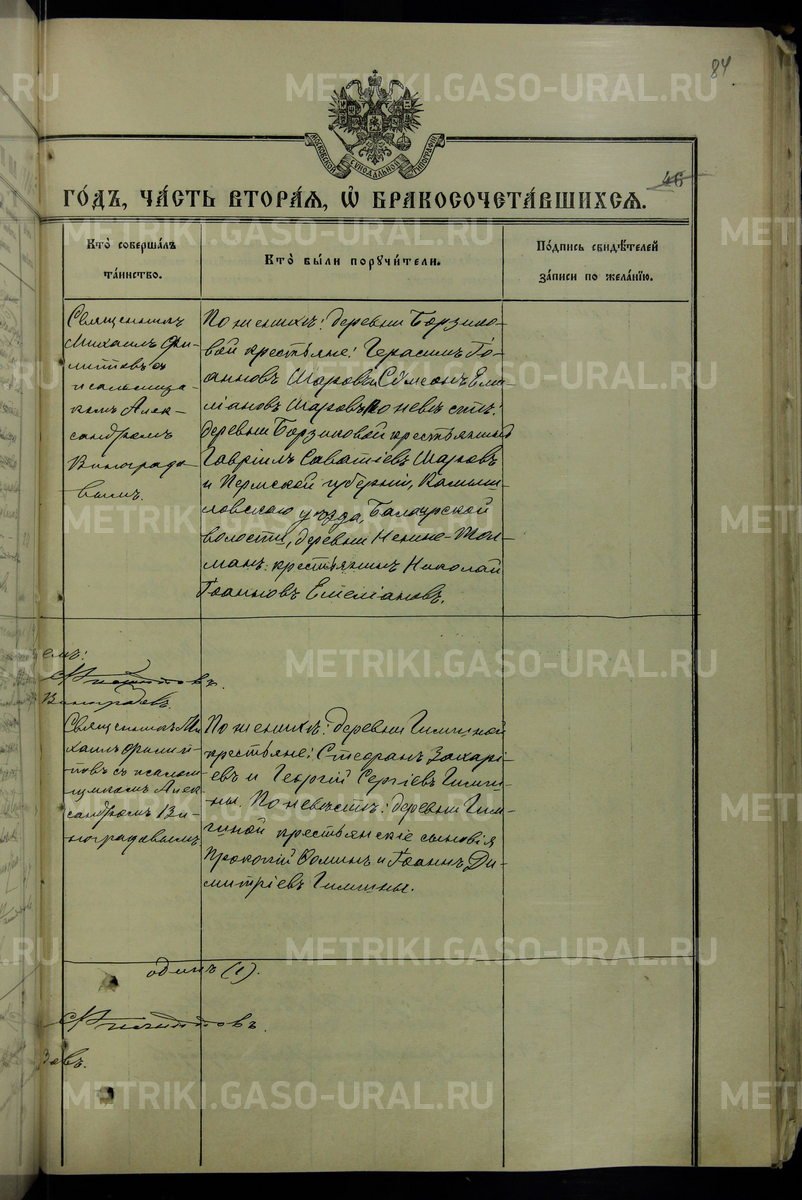 84
46
МОСКОВСКОЙ СѴНОДАЛЬНОЙ ТИПОГРАФІИ
ГО́ДЪ, ЧА́СТЬ ВТОРА́Ѧ, Ѡ҆ БРАКОСОЧЕТА́ВШИХСѦ.
Кто̀ соверша́лъ
та́инство.
Кто̀ бы́ли порꙋчи́тели.
По́дпись свидѣ́телей
за́писи по жела́нїю.
Священникъ
Михаилъ Фи-
литовъ съ
псаломщи-
комъ Алек-
сандромъ
Виноградо-
вымъ.
По женихѣ: деревни Борзико-
вой крестьяне: Герасимъ Іо-
анновъ Шаровъ и Сѵмеонъ Еми-
ліановъ Шаровъ. По невѣстѣ:
деревни Борзиковой крестьянинъ
Гавріилъ Саватіевъ Шаровъ
и Пермской губерніи, Камыш-
ловскаго уѣзда, Балаирской
волости, деревни
крестьянинъ Николай
Іоанновъ Емеліановъ.
емъ:
Виноградовъ.
Священникъ Ми-
хаилъ Филии-
товъ съ псалом-
щикомъ Алек-
сандромъ Ви-
ноградовымъ.
По женихѣ: деревни Гилиной
крестьяне: Стефанъ Захарі-
евъ и Георгій Сергіевъ Гили-
ны. По невѣстѣ: деревни Ги-
крестьянскіе сыновья
Прокопій Ѳоминъ и Іоаннъ Ди-
митріевъ
одинъ (1).
довъ.
METRIKI.GASO-URAL.RU